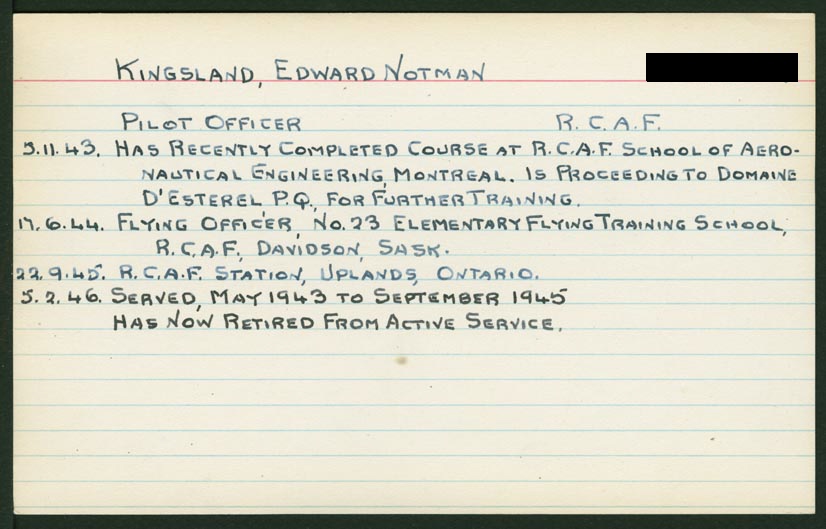 KINGSLAND, EDWARD NOTMAN
PILOT OFFICER R.C.A.F.
5.11.43. HAS RECENTLY COMPLETED COURSE AT R.C.A.F. SCHOOL OF AERO-
NAUTICAL ENGINEERING, MONTREAL. IS PROCEEDING TO DOMAINE
D'ESTEREL P.Q., FOR FURTHER TRAINING.
17.6.44. FLYING OFFICER, NO.23 ELEMENTARY FLYING TRAINING SCHOOL,
R.C.A.F., DAVIDSON, SASK.
22.9.45. R.C.A.F. STATION, UPLANDS, ONTARIO.
5.2.46. SERVED, MAY 1943 TO SEPTEMBER 1945
HAS NOW RETIRED FROM ACTIVE SERVICE.